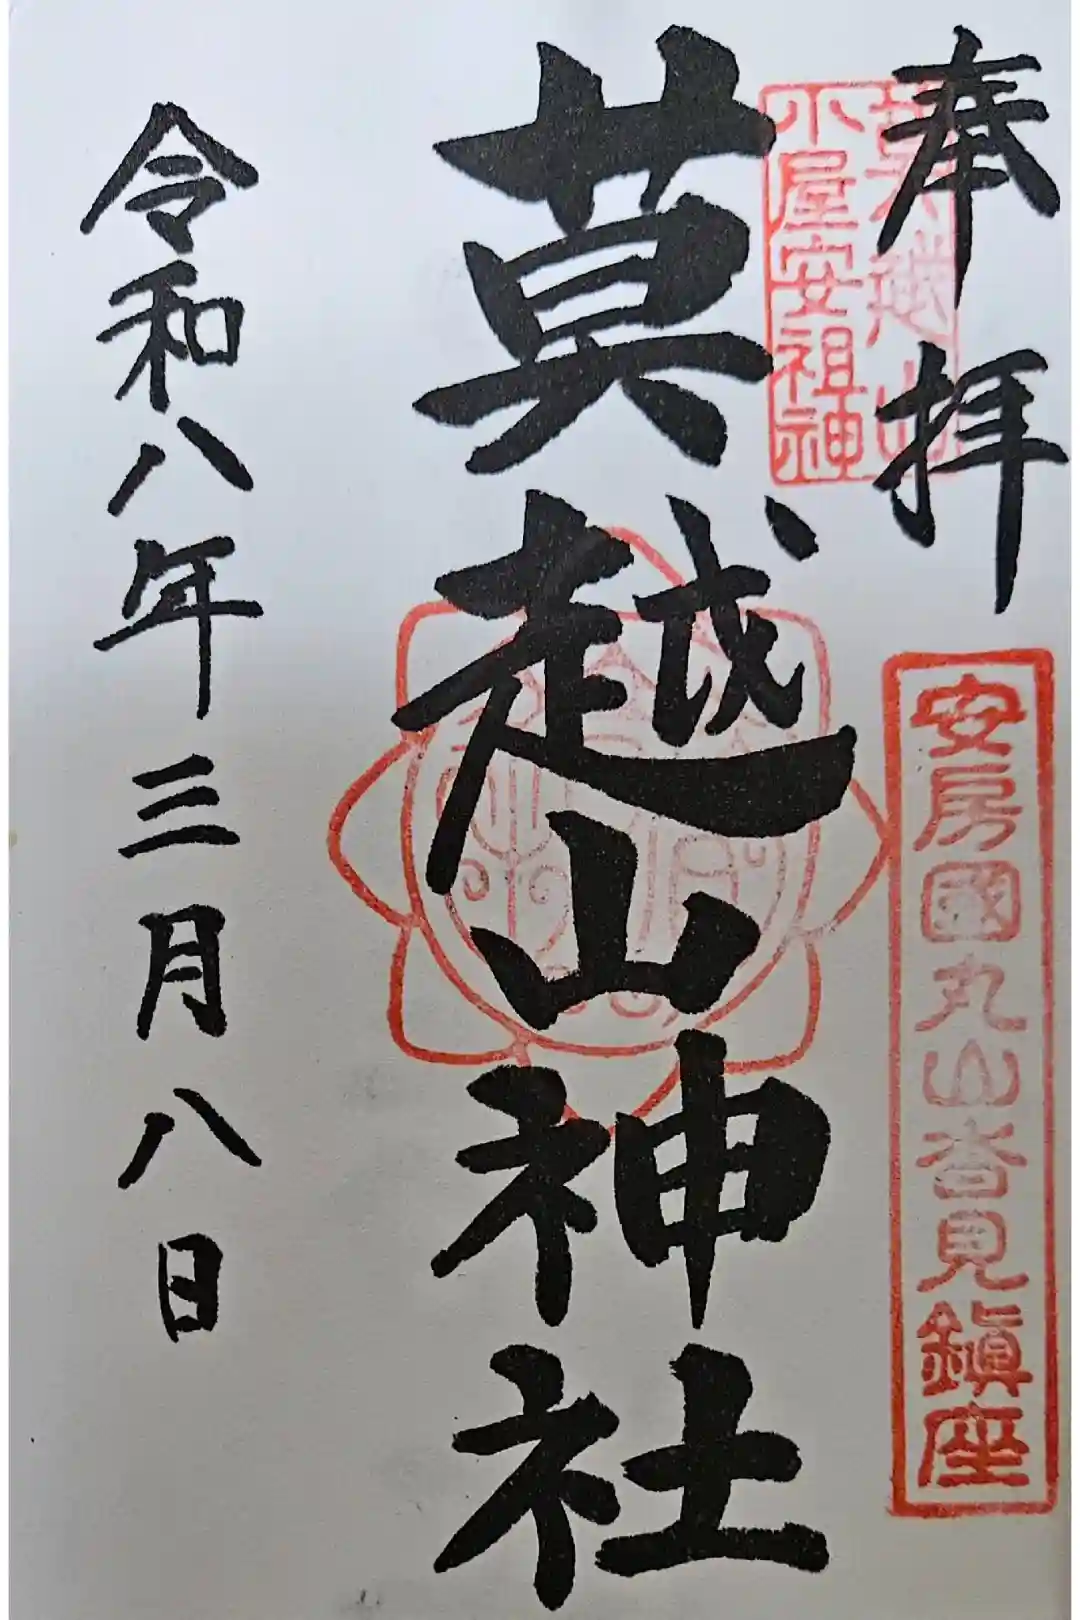 奉拝
小屋安祖神
安房國丸山沓見鎮座
莫越山神社
令和八年三月八日